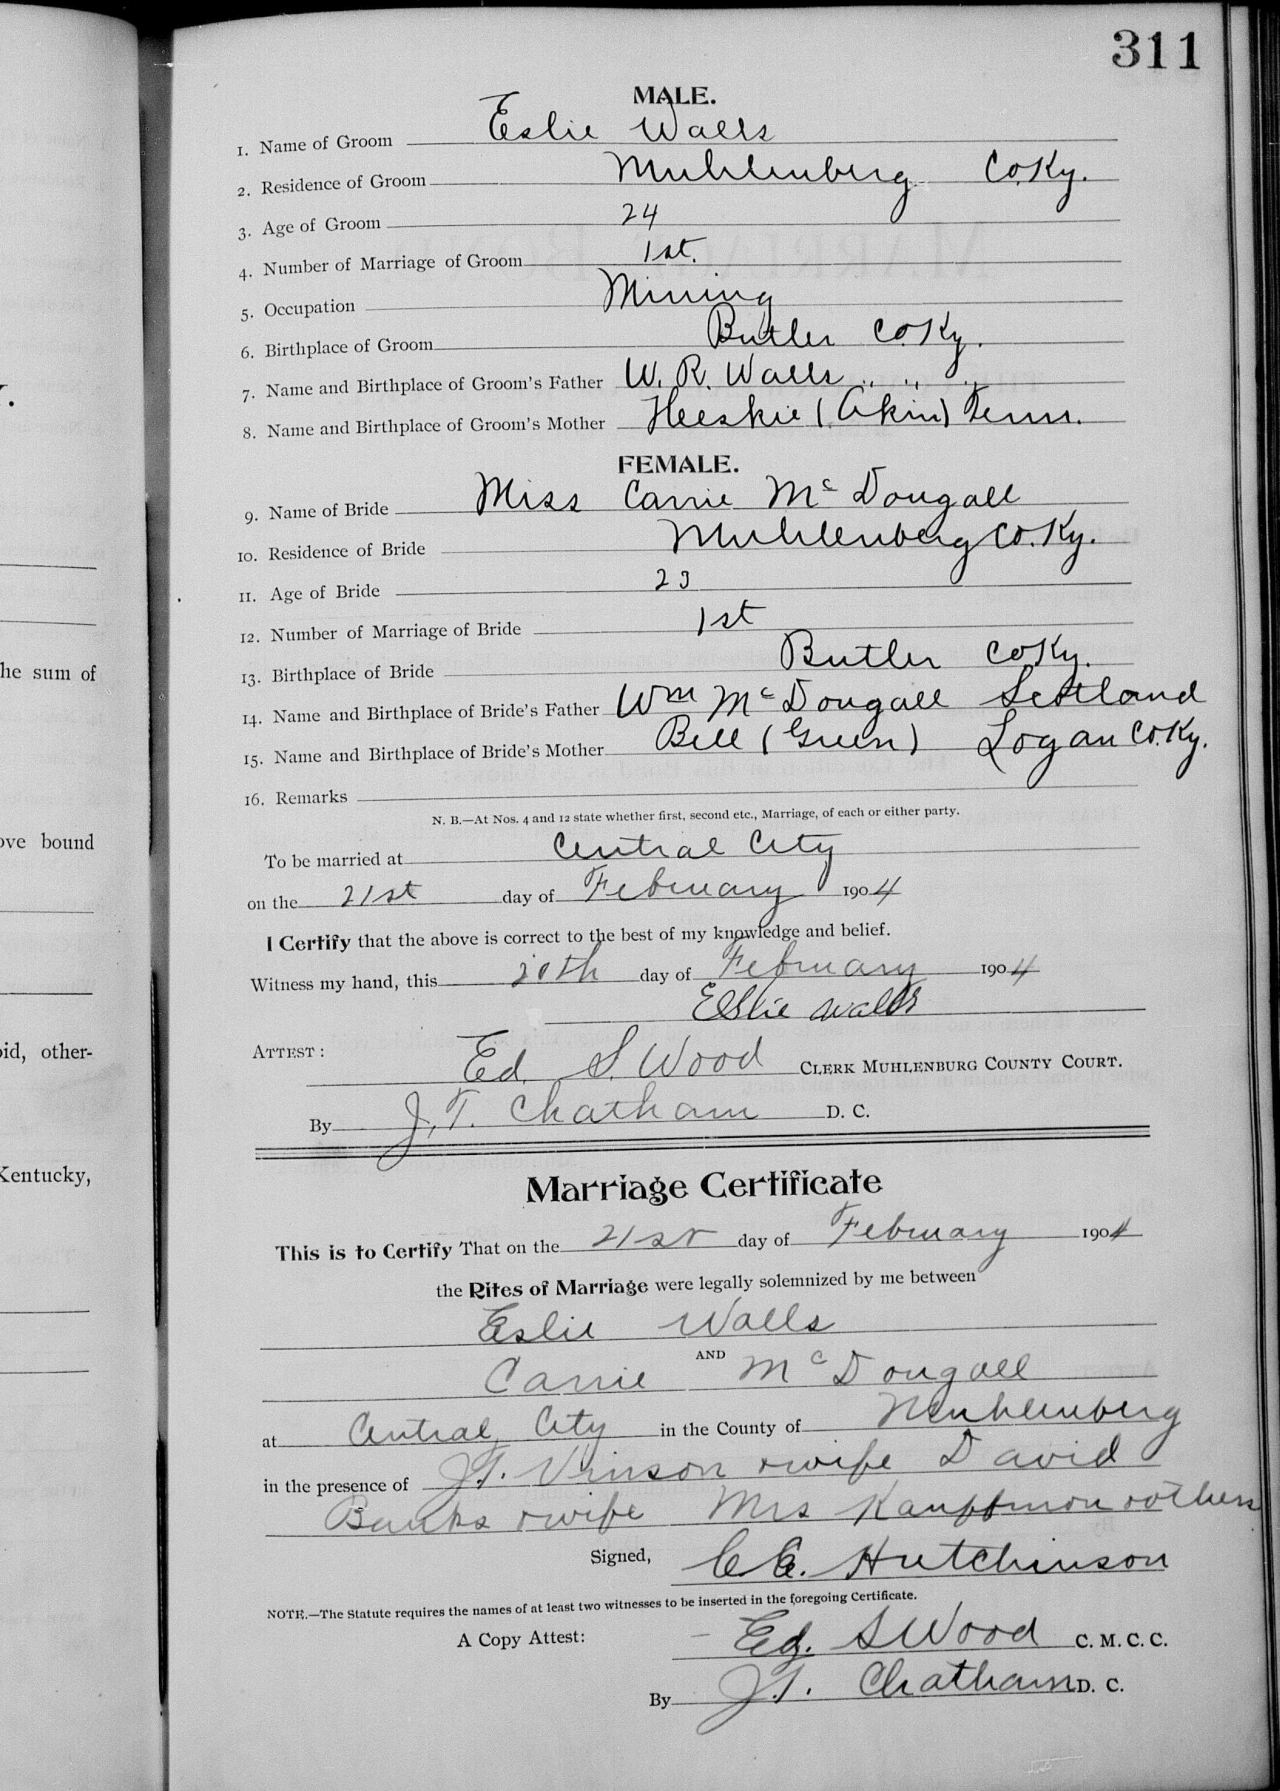 311
MALE.
1. Name of Groom Eslie Walls
2. Residence of Groom Muhlenberg Co. Ky.
3. Age of Groom 24
4. Number of Marriage of Groom 1st.
5. Occupation Mining
6. Birthplace of Groom Butler Co. Ky.
7. Name and Birthplace of Groom's Father W. R. Walls " " "
8. Name and Birthplace of Groom's Mother Heeskie (Akin) Tenn.
FEMALE.
9. Name of Bride Miss Carrie McDougall
10. Residence of Bride Muhlenberg Co. Ky.
11. Age of Bride 23
12. Number of Marriage of Bride 1st
13. Birthplace of Bride Butler Co Ky.
14. Name and Birthplace of Bride's Father Wm McDougall Scotland
15. Name and Birthplace of Bride's Mother Bell (Green) Logan Co. Ky.
16. Remarks
N. B.—At Nos. 4 and 12 state whether first, second etc., Marriage, of each or either party.
To be married at Central City
on the 21st day of February 1904
I Certify that the above is correct to the best of my knowledge and belief.
Witness my hand, this 20th day of February 1904
Eslie Walls
ATTEST: Ed. S. Wood CLERK MUHLENBURG COUNTY COURT.
By J. T. Chatham D. C.
Marriage Certificate
This is to Certify That on the 21st day of February 1904
the Rites of Marriage were legally solemnized by me between
Eslie Walls
AND
Carrie McDougall
at Central City in the County of Muhlenberg
in the presence of J. T. Vinson & wife David
Banks & wife Mrs Kauffman & others
Signed, C. E. Hutchinson
NOTE.—The Statute requires the names of at least two witnesses to be inserted in the foregoing Certificate.
A Copy Attest: Ed. S Wood C. M. C. C.
By J. T. Chatham D. C.
he sum of
ove bound
oid, other-
Kentucky,